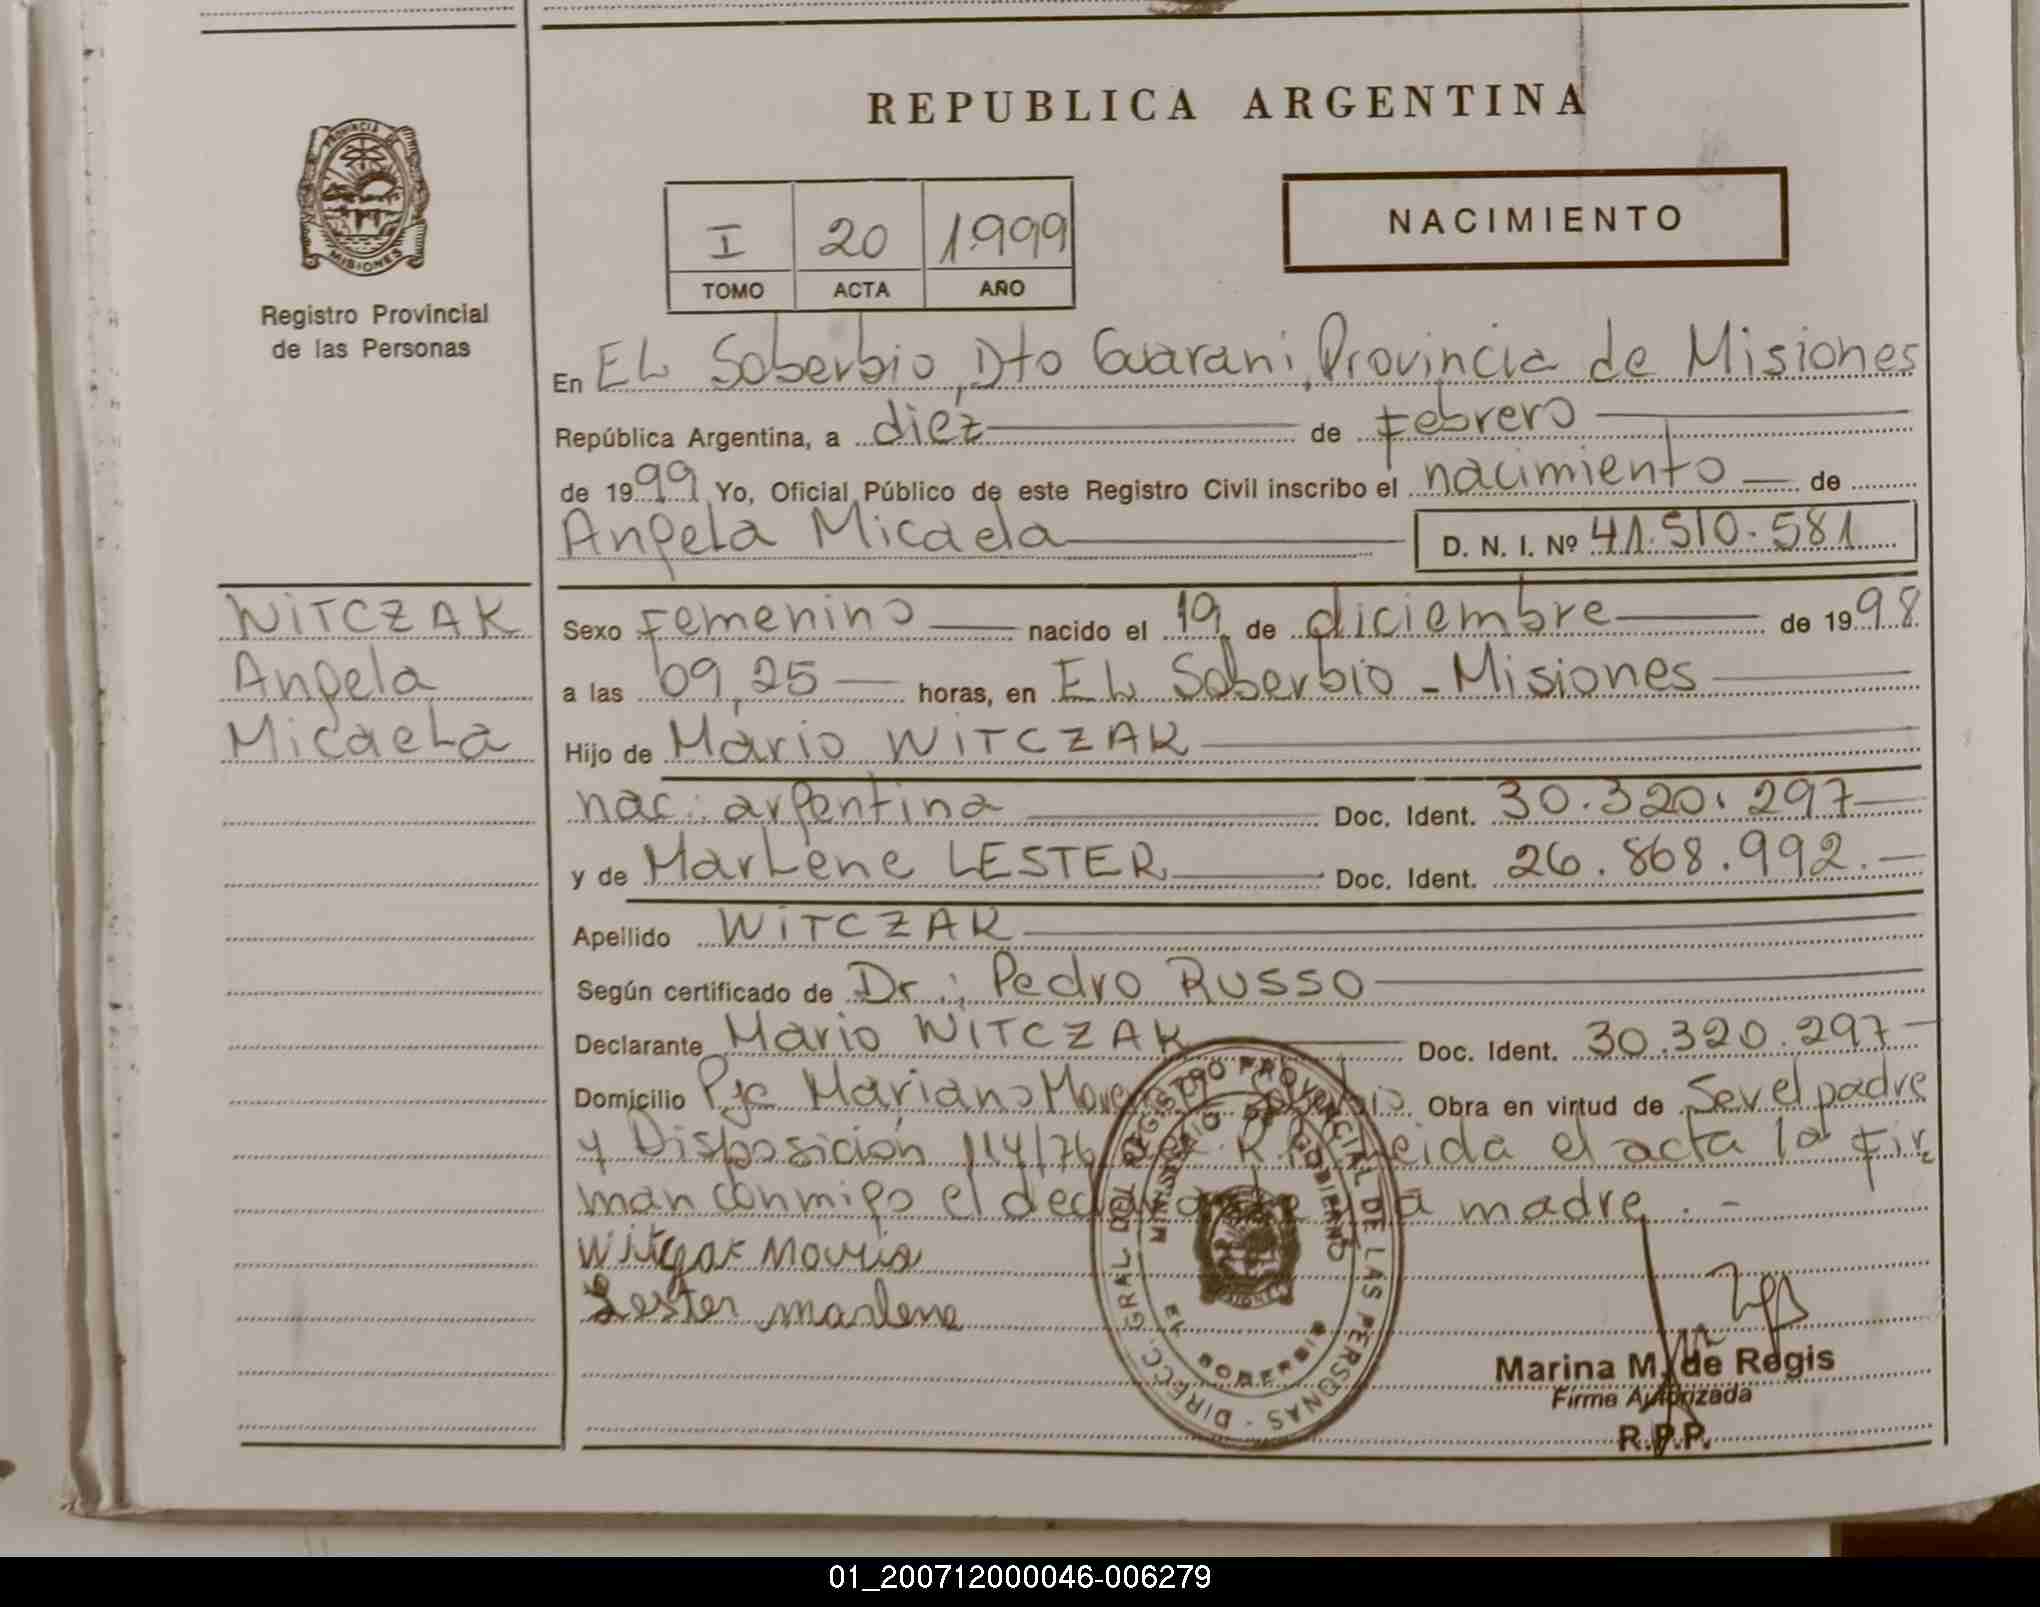 REPUBLICA ARGENTINA
PROVINCIA DE
MISIONES
Registro Provincial
de las Personas
I 20 1999
TOMO ACTA AÑO
NACIMIENTO
En EL Soberbio, Dto Guarani, Provincia de Misiones
República Argentina, a diez de Febrero
de 1999 Yo, Oficial Público de este Registro Civil inscribo el nacimiento de
Angela Micaela D. N. I. Nº 41.510.581
WITCZAK
Angela
Micaela
Sexo Femenino nacido el 19 de diciembre de 1998
a las 09,25 horas, en EL Soberbio - Misiones
Hijo de Mario WITCZAK
nac: argentina Doc. Ident. 30.320.297
y de Marlene LESTER Doc. Ident. 26.868.992.
Apellido WITCZAK
Según certificado de Dr.: Pedro RUSSO
Declarante Mario WITCZAK Doc. Ident. 30.320.297
Domicilio Pje Mariano Obra en virtud de Ser el padre
y Disposición 114/76 el acta la fir
man conmigo el declarante madre. -
Witczak Mario
Lester marlene
DIRECC. GRAL DEL REGISTRO PROVINCIAL DE LAS PERSONAS -
MINISTERIO DE GOBIERNO
EL SOBERBIO
Marina M. de Regis
Firma Autorizada
R.P.P.
01_200712000046-006279